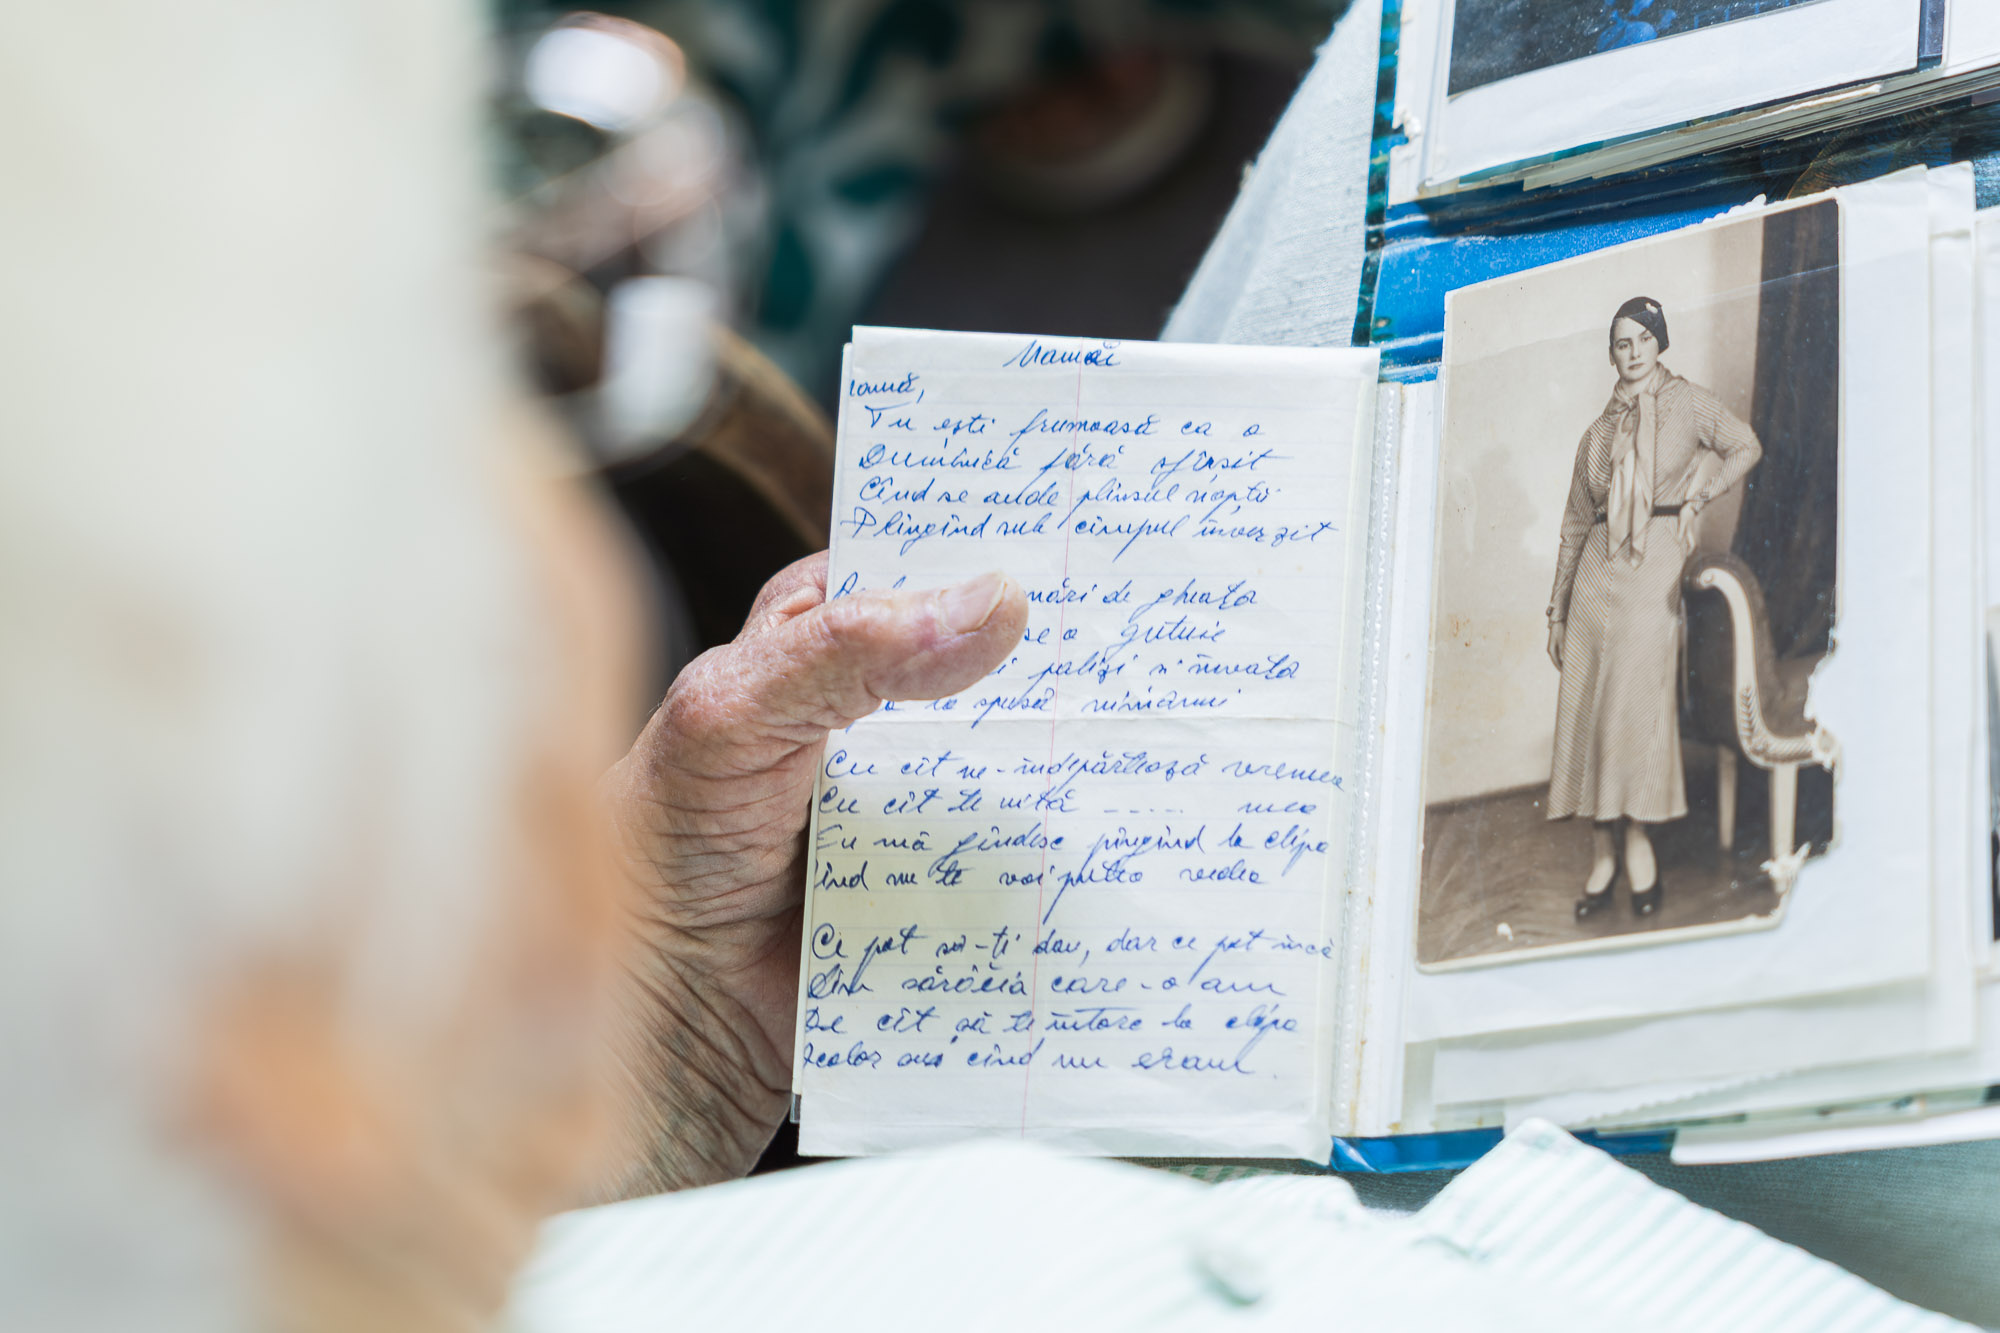 Mamei
Tu ești frumoasă ca o
Duminică fără sfîrșit
Cînd se aude plînsul nopții
Plîngînd sub cîmpul înverzit
mări de gheața
se o gutuie
i palizi n-învața
la spusă nimănui
Cu cît ne-îndepărtează vremea
Cu cît te uită ..... mea
Eu mă gîndesc pîngînd la clipa
înd nu te voi putea vedea
Ce pot să-ți dau, dar ce pot încă
Din sărăcia care-o am
De cît să te întorc la clipa
cînd nu eram.